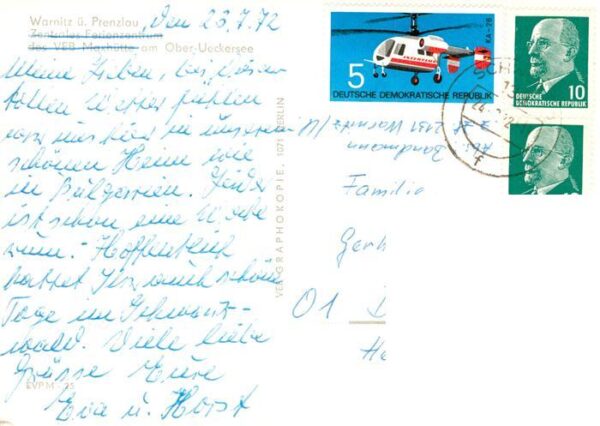 Warnitz ü. Prenzlau
Zentrales Ferienzentrum
des VEB Maxhütte am Ober-Ueckersee
Den 23.7.72
Meine Lieben, bei diesem
tollen Wetter fühlen
wir uns hier in unserem
schönen Heim wie
in Bulgarien. Leider
ist schon eine Woche
rum. Hoffentlich
hattet Ihr auch schöne
Tage im Schwarz-
wald. Viele liebe
Grüsse Eure
Eva u. Horst
EVPM -,25
VEB GRAPHOKOPIE, 1071 BERLIN
5
DEUTSCHE DEMOKRATISCHE REPUBLIK
INTERFLUG
KA-26
10
DEUTSCHE
DEMOKRATISCHE REPUBLIK
Abs.
Sandmann
2131 Warnitz/U
Familie
Gerh
01 D
Ha